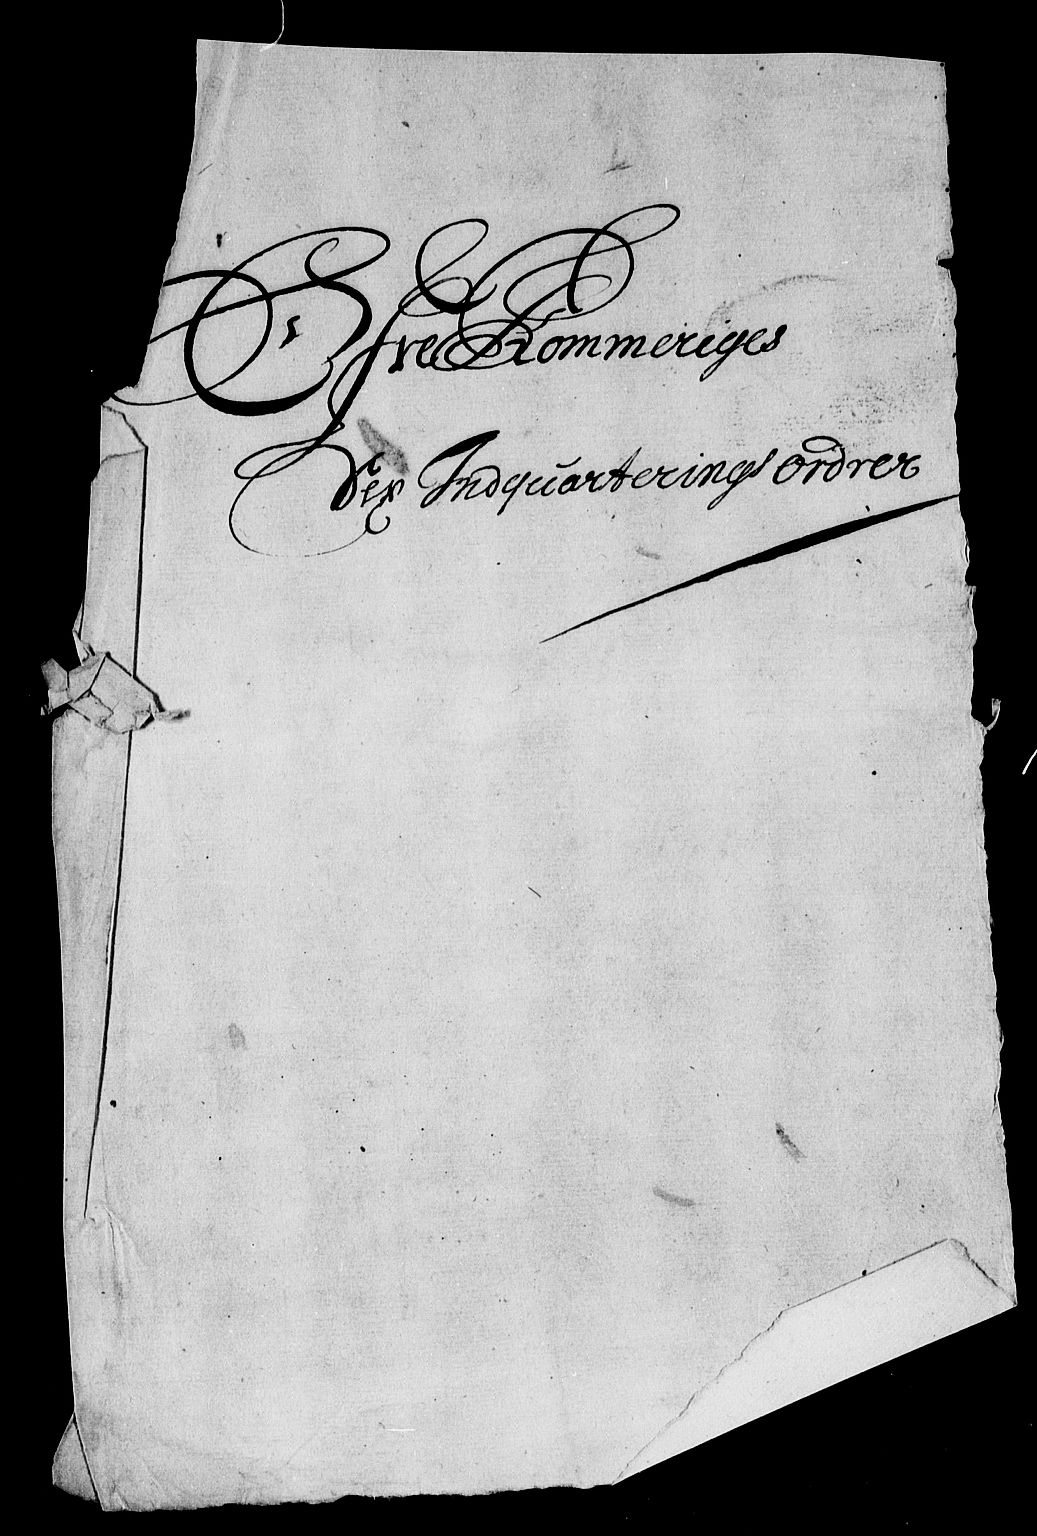 Øfre Rommeriges
Sex Indquarterings ordrer